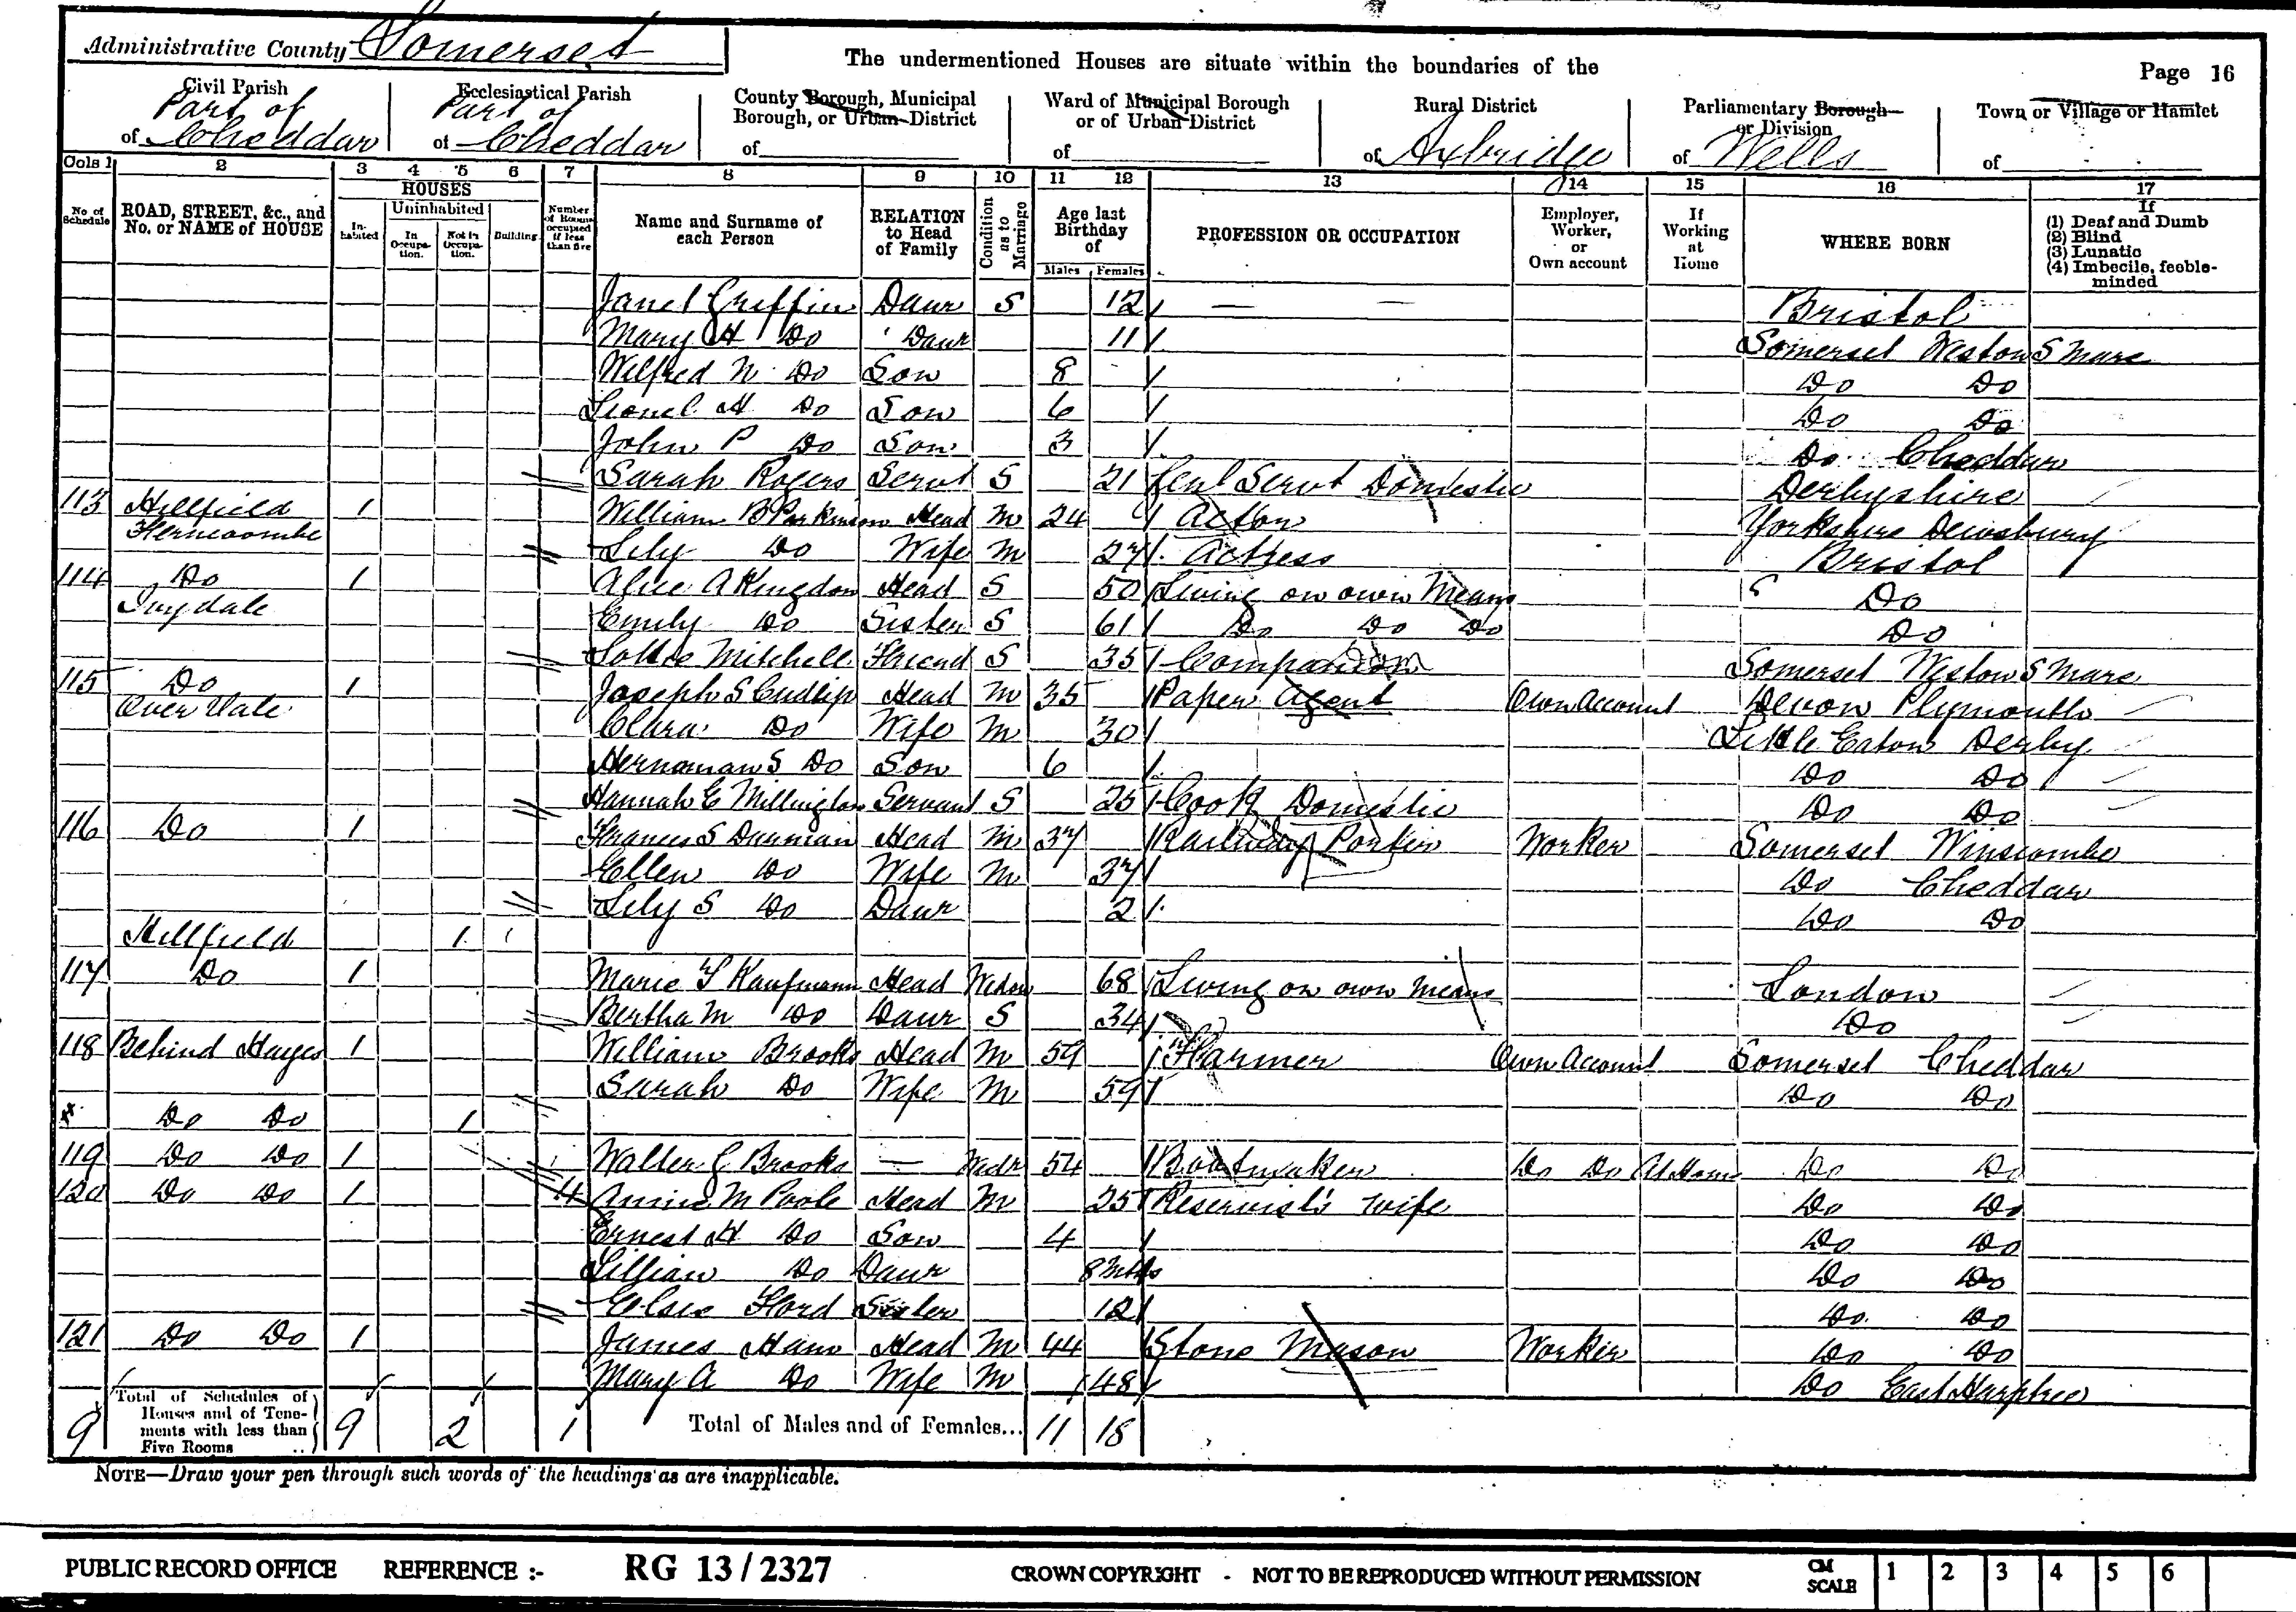 Administrative County Somerset
The undermentioned Houses are situate within the boundaries of the
Page 16
Civil Parish
Part of
of Cheddar
Ecclesiastical Parish
Part of
of Cheddar
County Borough, Municipal
Borough, or Urban District
of
Ward of Municipal Borough
or of Urban District
of
Rural District
of Axbridge
Parliamentary Borough
or Division
of Wells
Town or Village or Hamlet
of
Cols 1 2 3 4 5 6 7 8 9 10 11 12 13 14 15 16 17
No of Schedule
ROAD, STREET, &c., and No. or NAME of HOUSE
HOUSES
Inhabited
Uninhabited
In Occupation.
Not in Occupation.
Building
Number of Rooms occupied if less than five
Name and Surname of each Person
RELATION to Head of Family
Condition as to Marriage
Age last Birthday of
Males Females
PROFESSION OR OCCUPATION
Employer, Worker, or Own account
If Working at Home
WHERE BORN
If
(1) Deaf and Dumb
(2) Blind
(3) Lunatic
(4) Imbecile, feeble-minded
Janet Griffin Daur S 12 — — Bristol
Mary H Do Daur 11 Somerset Weston S Mare
Wilfred N Do Son 8 Do Do
Lionel H Do Son 6 Do Do
John P Do Son 3 Do Cheddar
Sarah Rogers Servt S 21 Genl Servt Domestic Derbyshire
113 Hillfield 1 William B Parkinson Head M 24 Actor Yorkshire Dewsbury
Lily Do Wife M 27 Actress Bristol
114 Do 1 Alice A Kingdon Head S 50 Living on own Means Do
Ivydale Emily Do Sister S 61 Do Do Do Do
Lottie Mitchell Friend S 35 Companion Somerset Weston S Mare
115 Do 1 Joseph S Cudlip Head M 35 Paper Agent Own Account Devon Plymouth
Over Vale Clara Do Wife M 30 Little Eaton Derby
Hernaman S Do Son 6 Do Do
Hannah E Millington Servant S 25 Cook Domestic Do Do
116 Do 1 Frances S Head M 37 Railway Porter Worker Somerset Winscombe
Ellen Do Wife M 37 Do Cheddar
Lily S Do Daur 2 Do Do
Hillfield 1
117 Do 1 Marie Kaufmann Head Widow 68 Living on own Means London
Bertha M Do Daur S 34 Do
118 Behind Hayes 1 William Brooks Head M 59 Farmer Own Account Somerset Cheddar
Sarah Do Wife M 59 Do Do
* Do Do 1
119 Do Do 1 Walter G Brooks — Widr 54 Bootmaker Do Do At Home Do Do
120 Do Do 1 4 Annie M Poole Head M 25 Reservist's wife Do Do
Ernest H Do Son 4 Do Do
Lillian Do Daur 8 mths Do Do
Elsie Ford Sister 12 Do Do
121 Do Do 1 James Ham Head M 44 Stone Mason Worker Do Do
Mary A Do Wife M 48 Do East Harptree
9 Total of Schedules of Houses and of Tenements with less than Five Rooms .. 9 2 1 Total of Males and of Females... 11 18
NOTE—Draw your pen through such words of the headings as are inapplicable.
PUBLIC RECORD OFFICE REFERENCE :- RG 13 / 2327 CROWN COPYRIGHT - NOT TO BE REPRODUCED WITHOUT PERMISSION CM SCALE 1 2 3 4 5 6